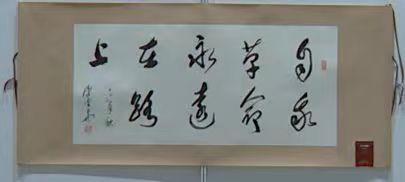 自我
革命
永远
在路
上